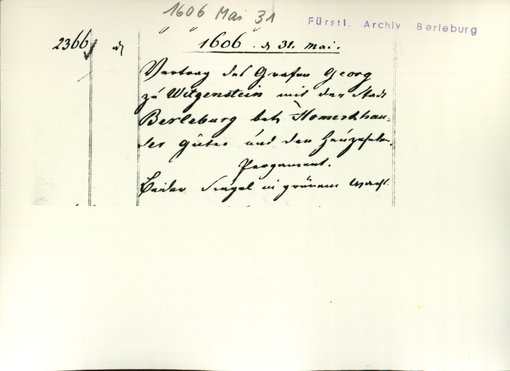 1606 Mai 31
Fürstl. Archiv Berleburg
2366
1606. d 31. Mai.
Vertrag des Grafen Georg
zu Witgenstein mit der Stadt
Berleburg betr.
der Güter und den
Pergament.
Beider Siegel in grünem Wachs